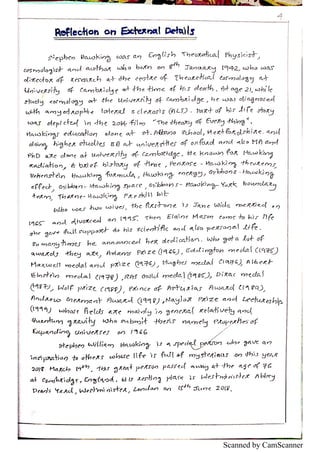 4
Reflection on External Details
Stephen Hawking was an English Theoretical Physicist,
cosmologist and author who born on 8th January 1942, who was
director of research at the centre of Theoretical cosmology at
University of Cambridge at the time of his death. At age 21, while
study cosmology at the University of Cambridge, he was diagnosed
with amyotrophic lateral sclerosis (ALS). Part of his life story
was depicted in the 2014 film "The theory of Every thing".
Hawkings education done at st. Albans School, Hertfordshire and
doing higher studies BA at universities of oxford and also MA and
PhD are done at university of Cambridge. He known for Hawking
radiation, A brief history of time, Penrose - Hawking theorems
Bekenstein Hawking formula, Hawking energy, Gibbons - Hawking
effect, Gibbon - Hawking Space, Gibbons - Hawking - York boundary
term, Thorne - Hawking Preskill bit
Who was two wives, the first one is Jane Wilde married on
1965 and divorced on 1995. Then Elaine Mason come to his life
she gave full support to his scientific and also personal life.
So many times he announced her dedication. Who got a lot of
awards they are, Adams Prize (1966), Eddington medal (1975)
Maxwell medal and prize (1976), Hughes medal (1976), Albert
Einstein medal (1979), RAS Gould medal (1985), Dirac medal
(1987), Wolf prize (1988), Prince of Asturias Award (1989),
Andrew Gremant Award (1998), Naylor Prize and Lectureship
(1999) whose fields are mainly in general relativity and
Quantum gravity who submit thesis namely Properties of
Expanding Universes on 1966
Stephen William Hawking is a special person who gave an
inspiration to others whose life is full of mysterious on this year
2018 March 14th. This great person passed away at the age of 76
at Cambridge, England. His resting place is Westminister Abbey
Deans Yard, Westminister, London on 15th June 2018.
Scanned by CamScanner